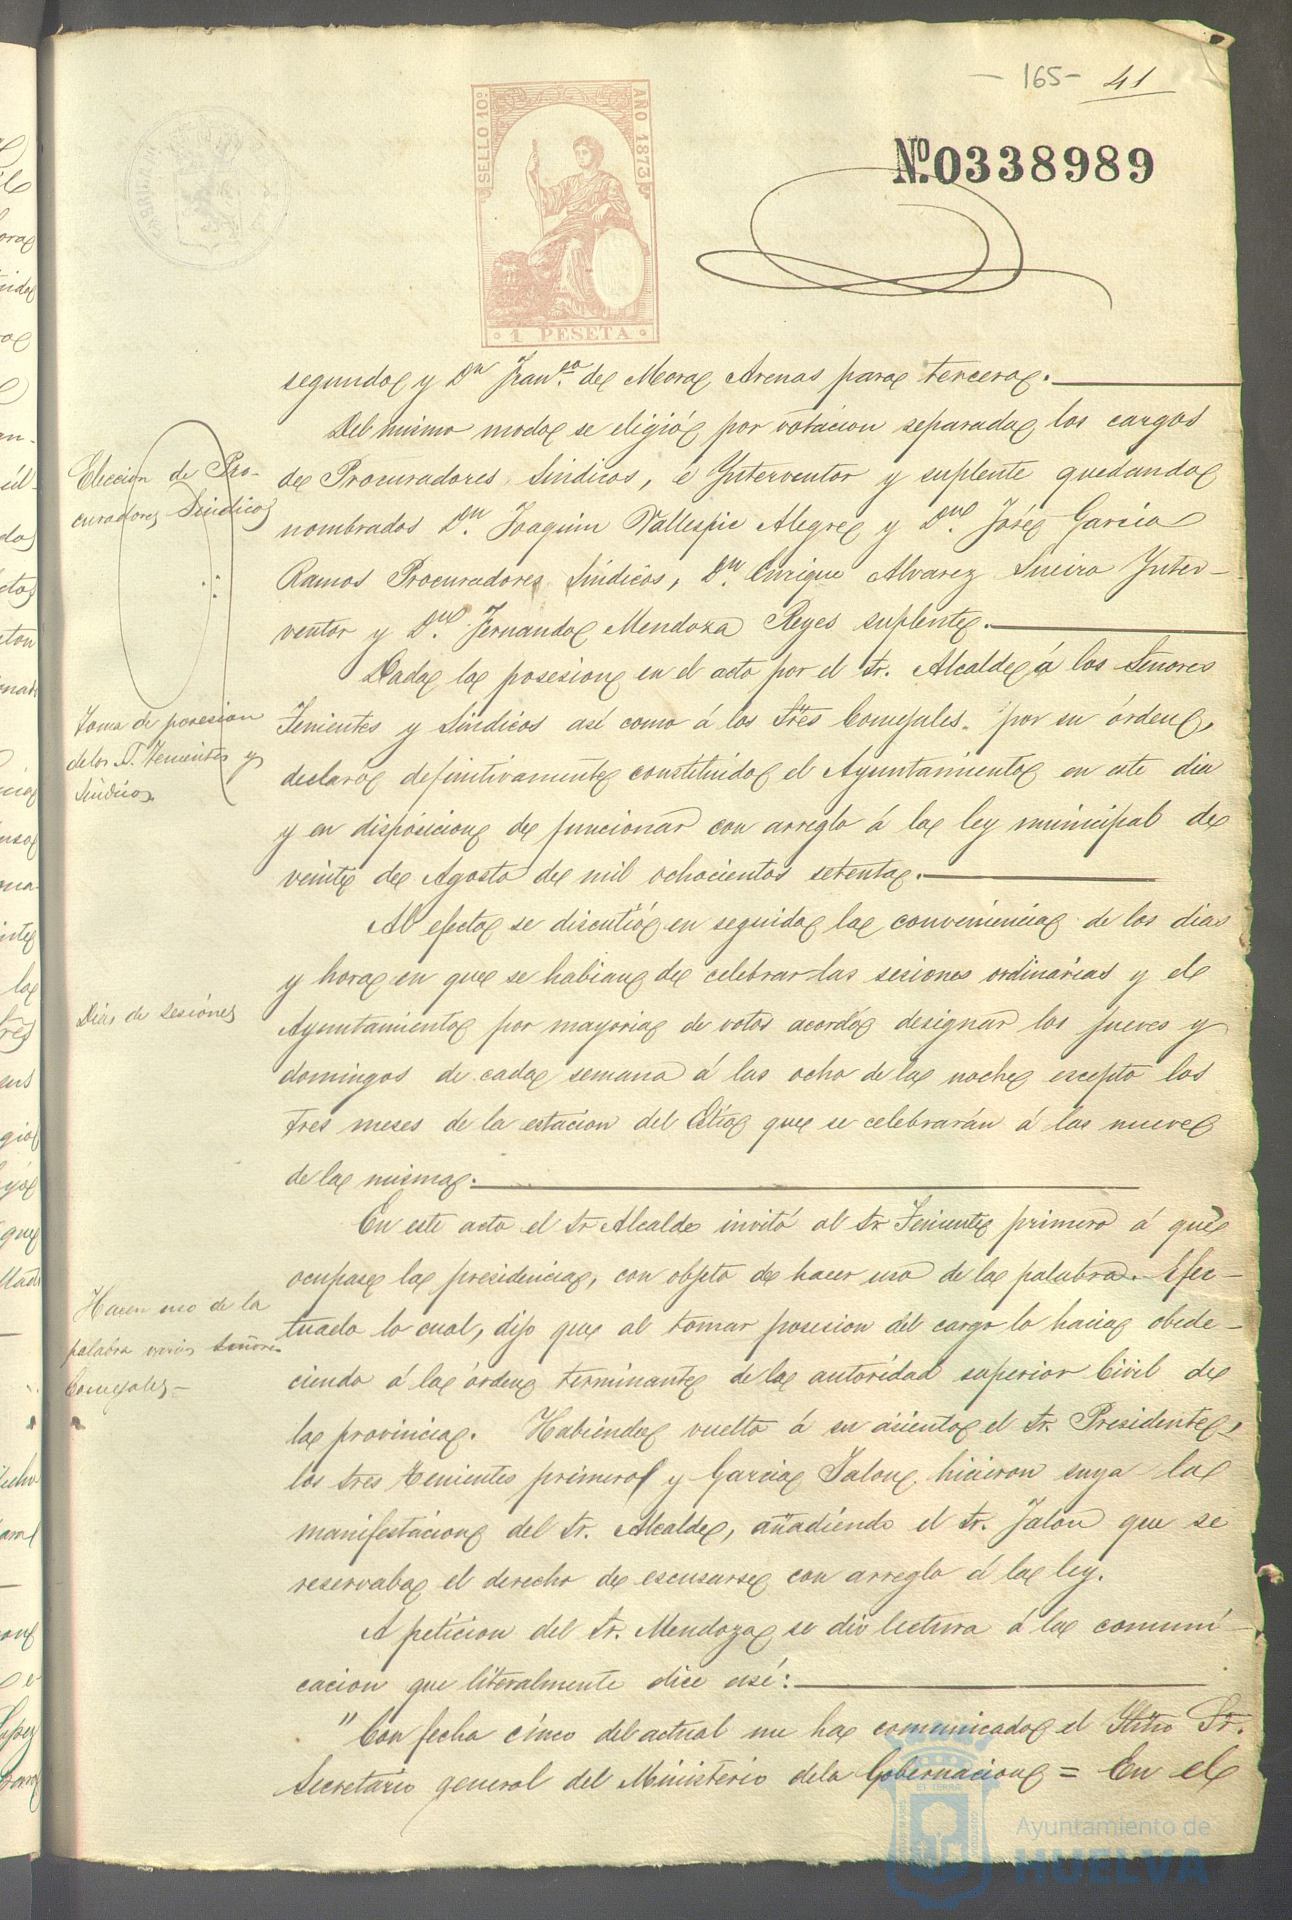 - 165 - 41
SELLO 10º
AÑO 1873
1 PESETA
Nº. 0338989
segundo y Dn. Franco. de Mora Arenas para tercero.
Del mismo modo se eligió por votacion separada los cargos
Eleccion de Pro-
curadores Sindicos
de Procuradores Sindicos, é Interventor y suplente quedando
nombrados Dn. Joaquin Vallespie Alegre y Dn. José Garcia
Ramos Procuradores Sindicos, Dn. Enrique Alvarez Sueiro Inter-
ventor y Dn. Fernando Mendoza Reyes suplente.
Dada la posesion en el acto por el Sr. Alcalde á los Señores
Toma de posesion
de los S. Tenientes y
Sindicos.
Tenientes y Sindicos así como á los Sres Concejales. por su órden,
declaro definitivamente constituido el Ayuntamiento en este dia
y en disposicion de funcionar con arreglo á la ley municipal de
veinte de Agosto de mil ochocientos setenta.
Al efecto se discutió en seguida la conveniencia de los dias
y hora en que se habian de celebrar las sesiones ordinarias y el
Dias de sesiónes
Ayuntamiento por mayoria de votos acordó designar los jueves y
domingos de cada semana á las ocho de la noche escepto los
tres meses de la estacion del Estío que se celebrarán á las nueve
de la misma.
En este acto el Sr Alcalde invitó al Sr Teniente primero á que
ocupase la presidencia, con objeto de hacer uso de la palabra. Efec-
Hacen uso de la
palabra varios Señores
Concejales-
tuado lo cual, dijo que al tomar posesion del cargo lo hacia obede-
ciendo á la órden terminante de la autoridad superior Civil de
la provincia. Habiendo vuelto á su asiento el Sr. Presidente,
los tres tenientes primeros y Garcia Jalon hicieron suya la
manifestacion del Sr. Alcalde, añadiendo el Sr. Jalon que se
reservaba el derecho de escusarse con arreglo á la ley.
A petición del Sr. Mendoza se dio lectura á la comuni-
cacion que literalmente dice asi:
" Con fecha cinco del actual me ha comunicado el Iltmo Sr.
Secretario general del Ministerio de la Gobernacion = En el
Ayuntamiento de
HUELVA